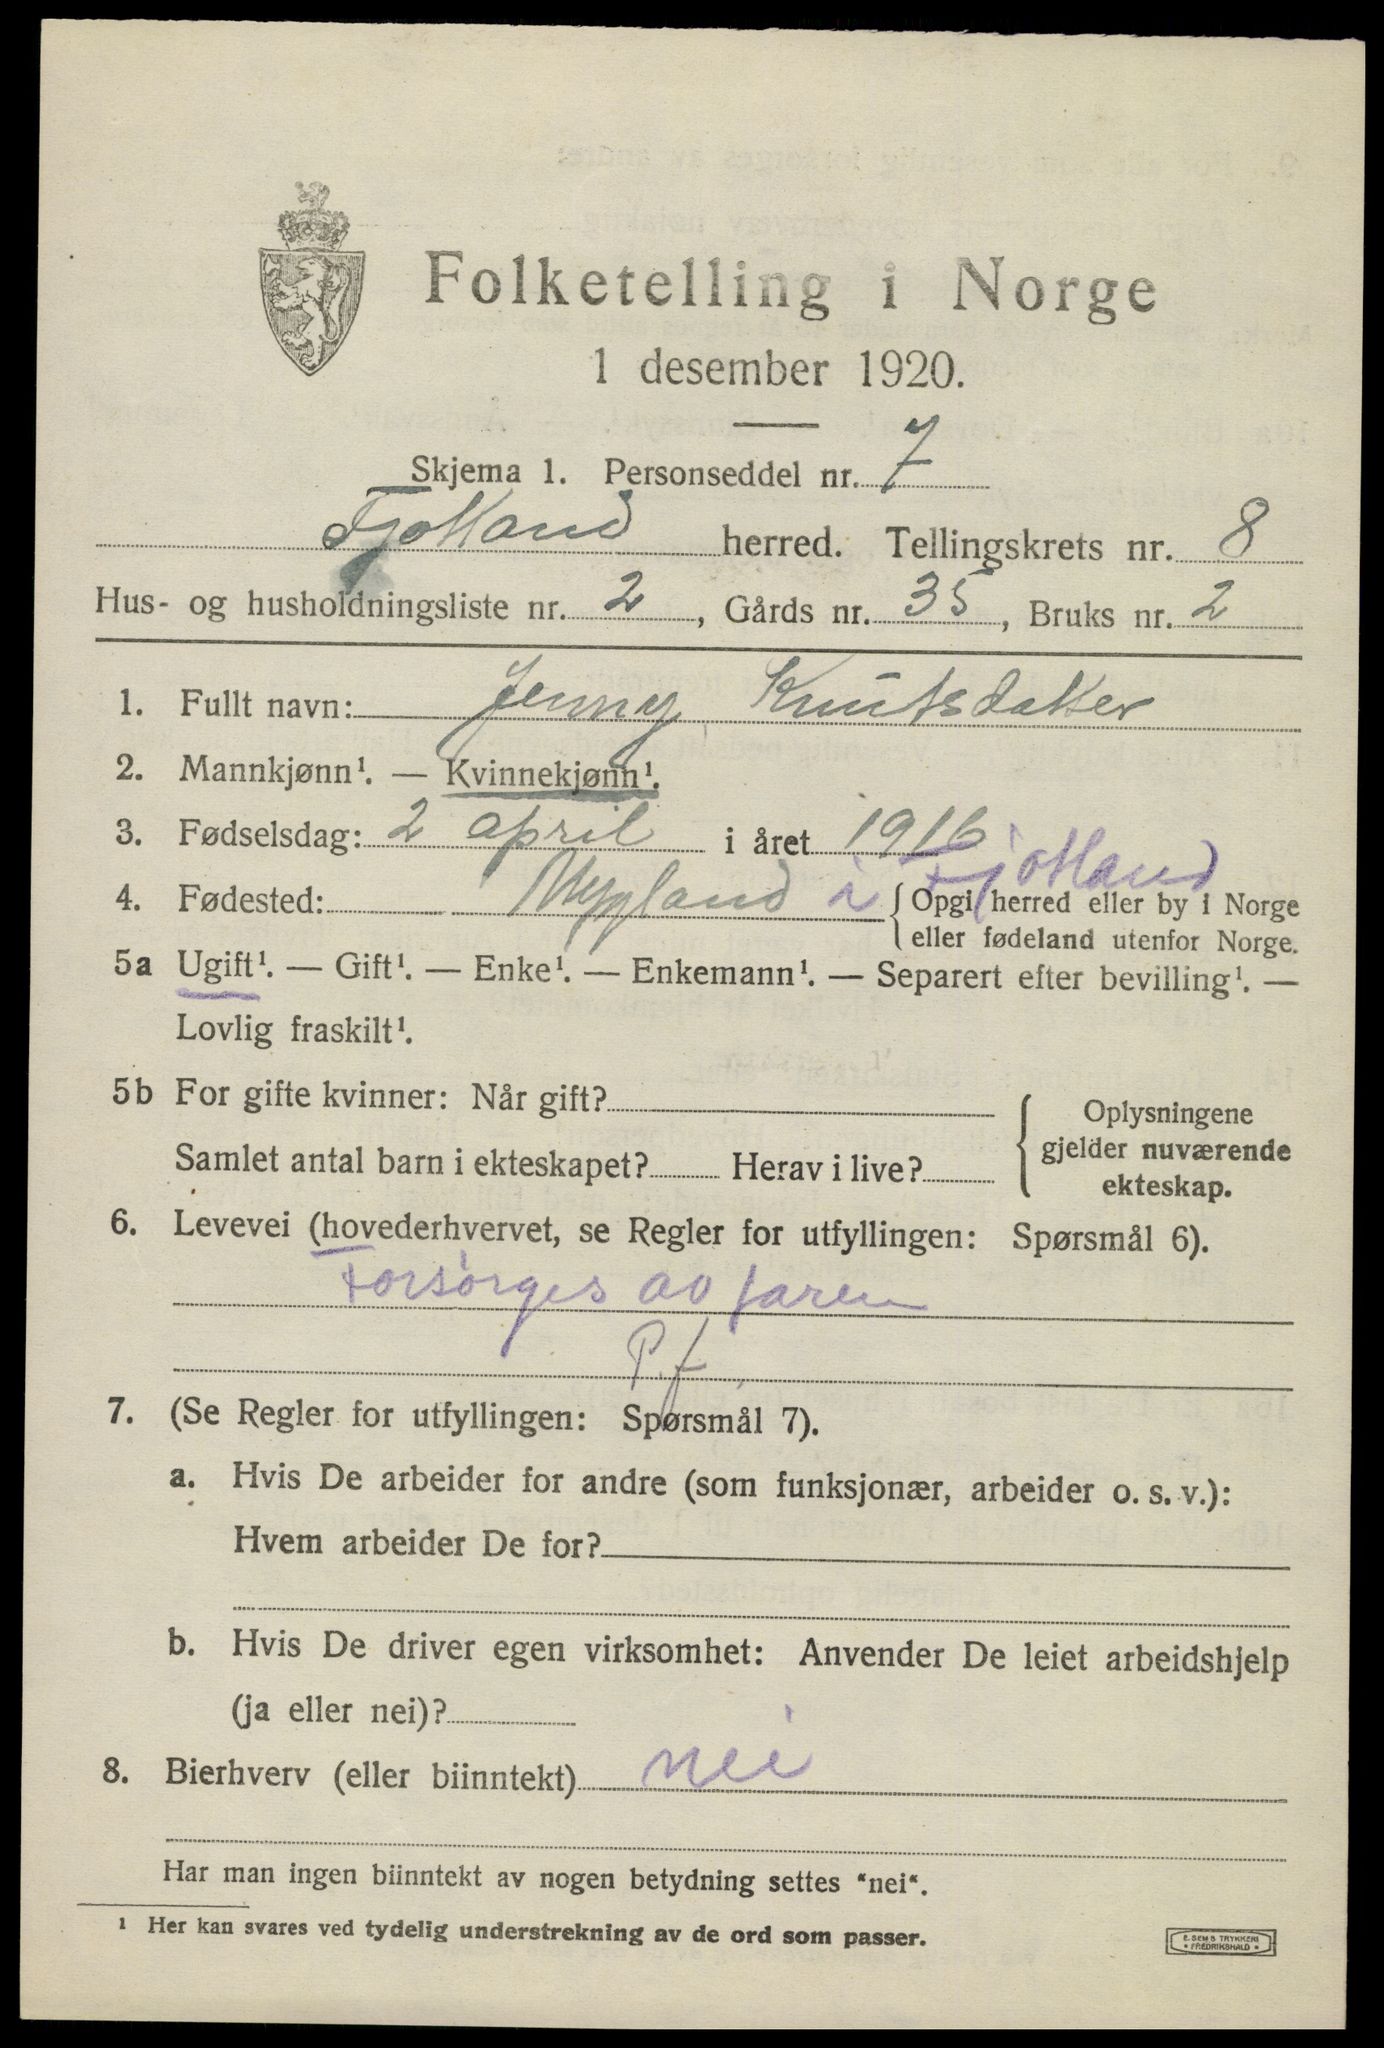 Folketelling i Norge
1 desember 1920.
Skjema 1. Personseddel nr. 7
Fjotland herred. Tellingskrets nr. 8
Hus- og husholdningsliste nr. 2, Gårds nr. 35, Bruks nr. 2
1. Fullt navn: Jenny Knutsdatter
2. Mannkjønn¹. — Kvinnekjønn¹.
3. Fødselsdag: 2 april i året 1916
4. Fødested: Mygland i Fjotland {Opgi herred eller by i Norge
eller fødeland utenfor Norge.
5a Ugift¹. — Gift¹. — Enke¹. — Enkemann¹. — Separert efter bevilling¹. —
Lovlig fraskilt¹.
5b For gifte kvinner: Når gift?
Samlet antal barn i ekteskapet? Herav i live?
Oplysningene
gjelder nuværende
ekteskap.
6. Levevei (hovederhvervet, se Regler for utfyllingen: Spørsmål 6).
Forsørges av faren
P. f.
7. (Se Regler for utfyllingen: Spørsmål 7).
a. Hvis De arbeider for andre (som funksjonær, arbeider o. s. v.):
Hvem arbeider De for?
b. Hvis De driver egen virksomhet: Anvender De leiet arbeidshjelp
(ja eller nei)?
8. Bierhverv (eller biinntekt) nei
Har man ingen biinntekt av nogen betydning settes "nei".
¹ Her kan svares ved tydelig understrekning av de ord som passer.
E. SEMS TRYKKERI
* FREDRIKSHALD *